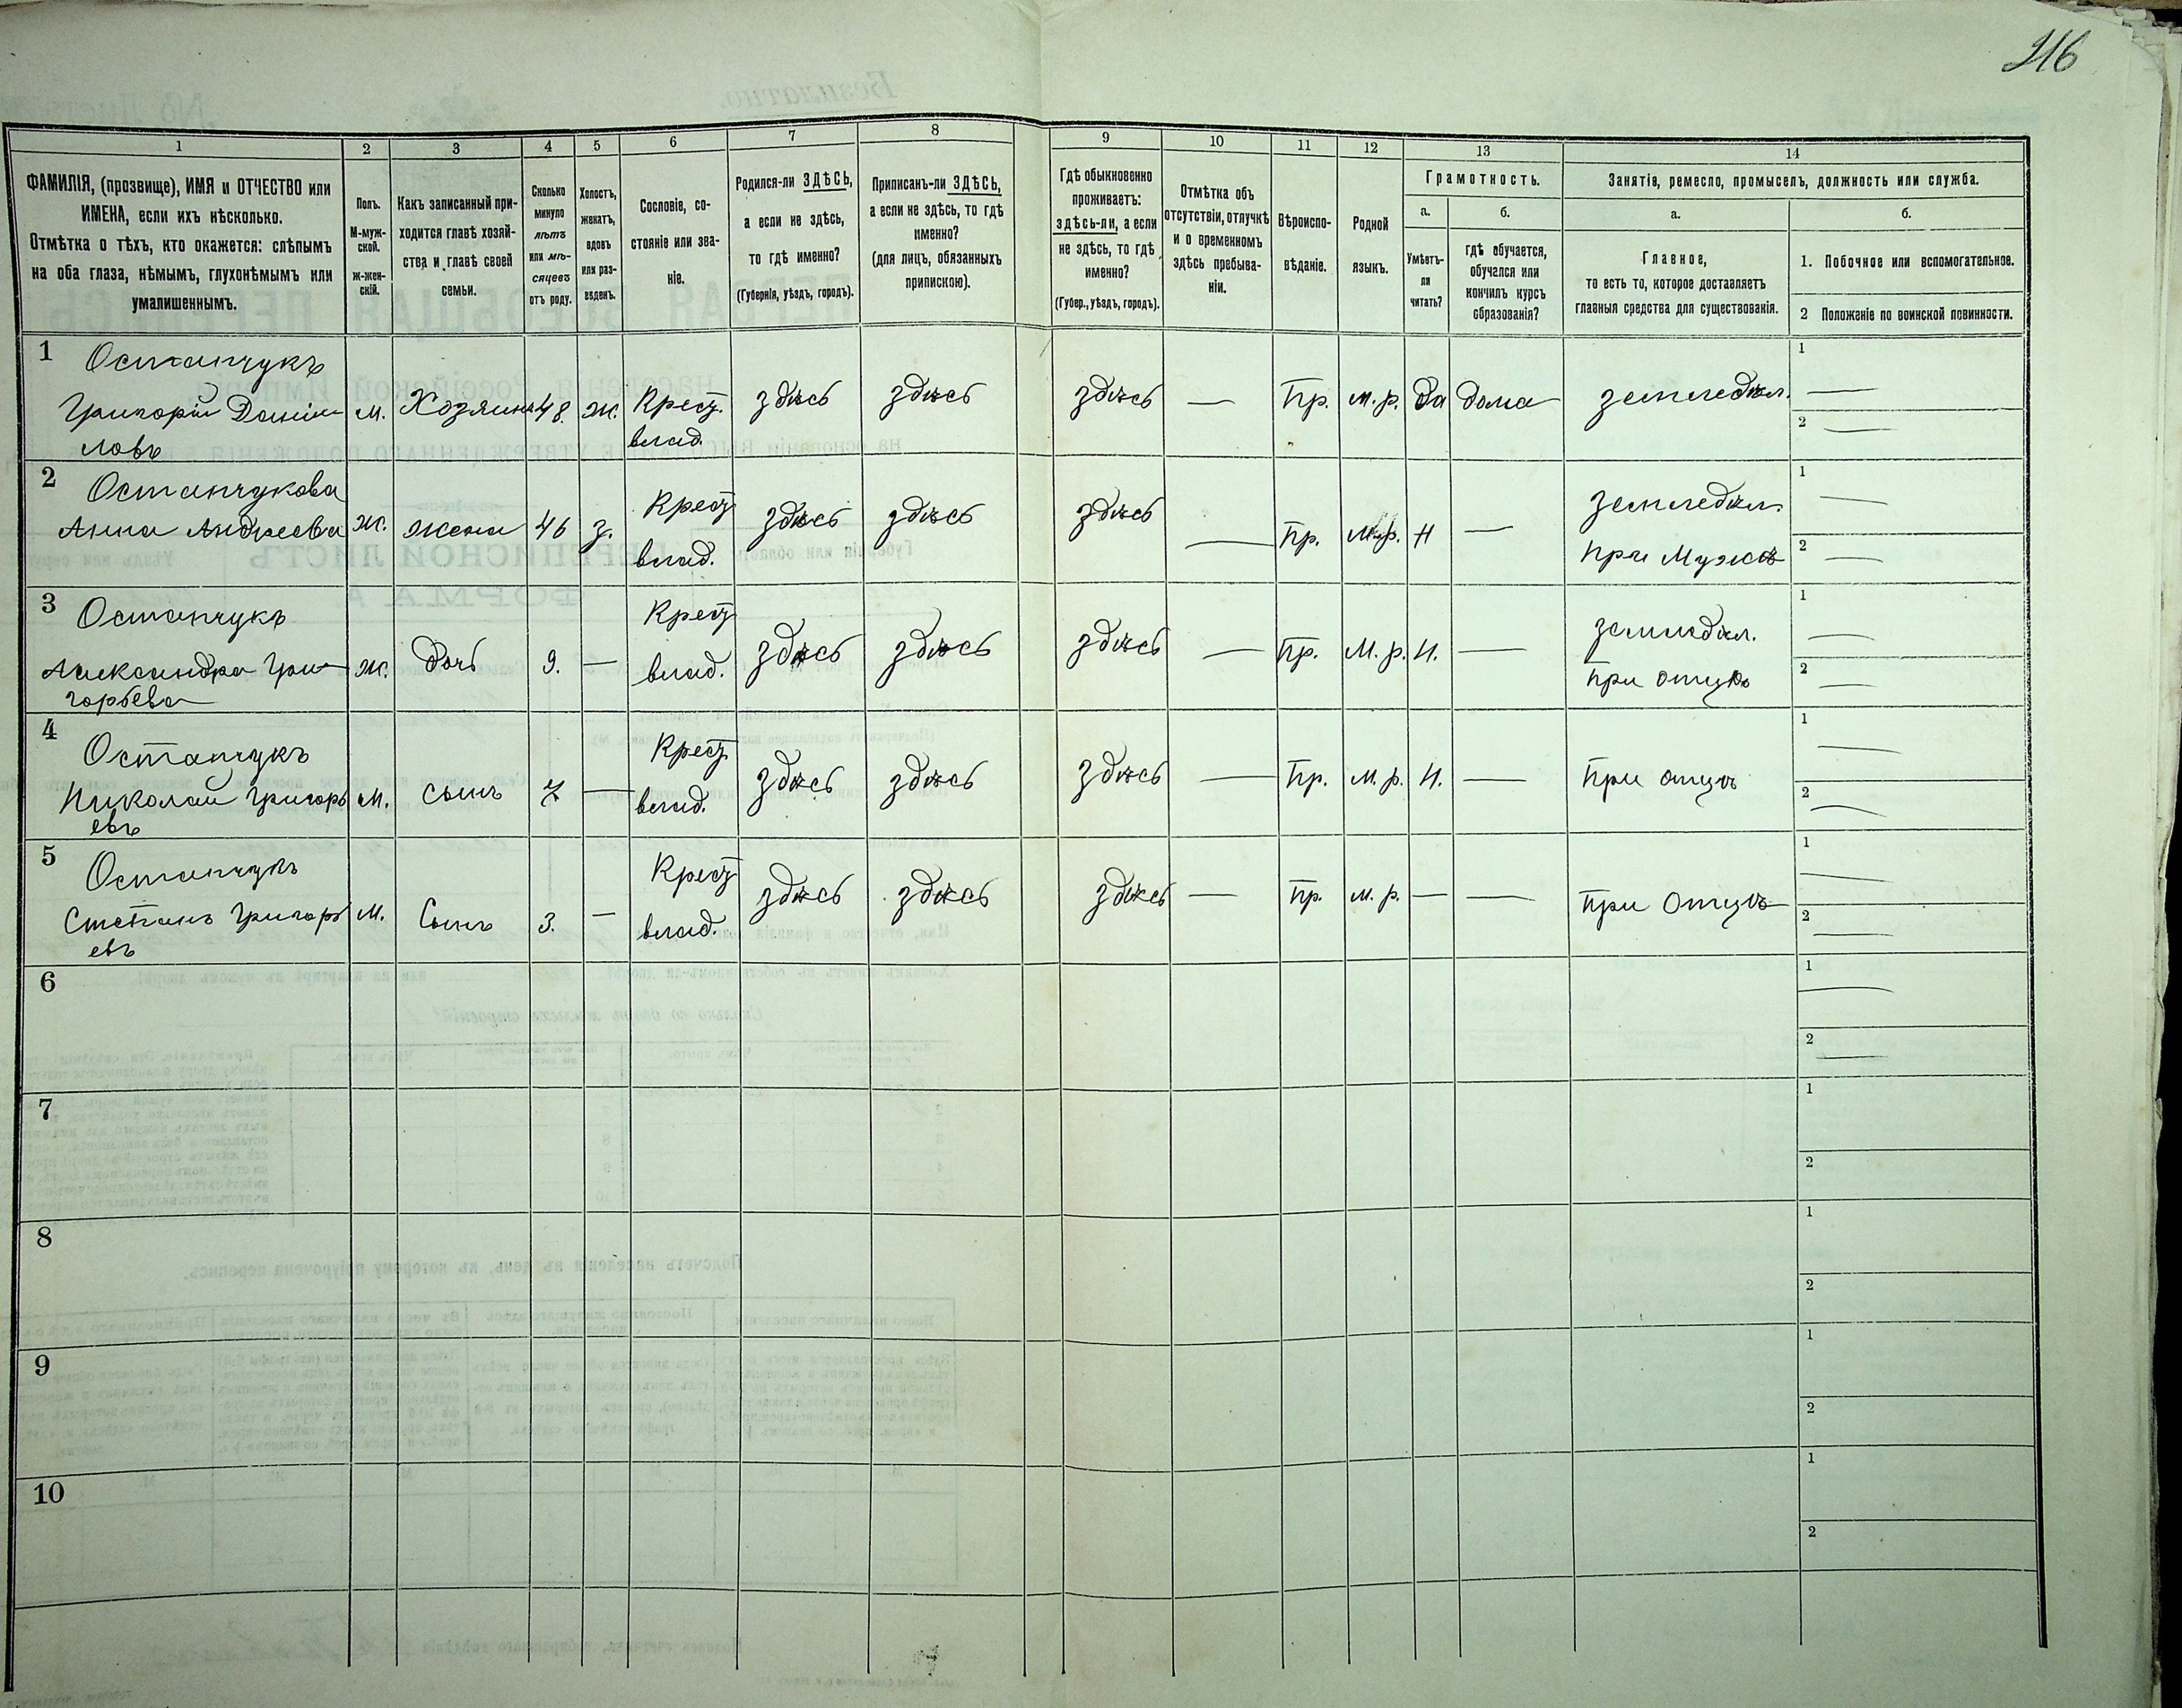 216
1 2 3 4 5 6 7 8 9 10 11 12 13 14
ФАМИЛІЯ, (прозвище), ИМЯ и ОТЧЕСТВО или
ИМЕНА, если ихъ нѣсколько.
Отмѣтка о тѣхъ, кто окажется: слѣпымъ
на оба глаза, нѣмымъ, глухонѣмымъ или
умалишеннымъ.
Полъ.
М-муж-
ской.
ж-жен-
скій.
Какъ записанный при-
ходится главѣ хозяй-
ства и главѣ своей
семьи.
Сколько
минуло
лѣтъ
или мѣ-
сяцевъ
отъ роду.
Холостъ,
женатъ,
вдовъ
или раз-
веденъ.
Сословіе, со-
стояніе или зва-
ніе.
Родился-ли ЗДѢСЬ,
а если не здѣсь,
то гдѣ именно?
(Губернія, уѣздъ, городъ).
Приписанъ-ли ЗДѢСЬ,
а если не здѣсь, то гдѣ
именно?
(для лицъ, обязанныхъ
припискою).
Гдѣ обыкновенно
проживаетъ:
здѣсь-ли, а если
не здѣсь, то гдѣ
именно?
(Губер., уѣздъ, городъ).
Отмѣтка объ
отсутствіи, отлучкѣ
и о временномъ
здѣсь пребыва-
ніи.
Вѣроиспо-
вѣданіе.
Родной
языкъ.
Грамотность.
а.
Умѣетъ-
ли
читать?
б.
гдѣ обучается,
обучался или
кончилъ курсъ
образованія?
Занятіе, ремесло, промыселъ, должность или служба.
а.
Главное,
то есть то, которое доставляетъ
главныя средства для существованія.
б.
1. Побочное или вспомогательное.
2 Положеніе по воинской повинности.
1 Остапчукъ
Григорій Даніи
ловъ
м. Хозяинъ 48. ж. Крест.
влад.
здѣсь здѣсь здѣсь — Пр. м. р. да дома земледѣл.
1 —
2 —
2 Остапчукова
Анна Андреева
ж. жена 46 з. Крест
влад.
здѣсь здѣсь здѣсь — Пр. М. р. Н —
земледѣл.
при Мужѣ
1 —
2 —
3 Остапчукъ
Александра Гри
горьева
ж. дочь 9. — Крест
влад.
здѣсь здѣсь здѣсь — Пр. М. р. Н. —
земледѣл.
при отцѣ
1 —
2 —
4 Остапчукъ
Николай Григорь
евъ
м. сынъ 7 — Крест
влад.
здѣсь здѣсь здѣсь — Пр. м. р. Н. — при отцѣ
1 —
2 —
5 Остапчукъ
Степанъ Григорь
евъ
м. Сынъ 3. — Крест
влад.
здѣсь здѣсь здѣсь — Пр. м. р. — — при Отцѣ
1 —
2 —
6
1 —
2 —
7
1
2
8
1
2
9
1
2
10
1
2